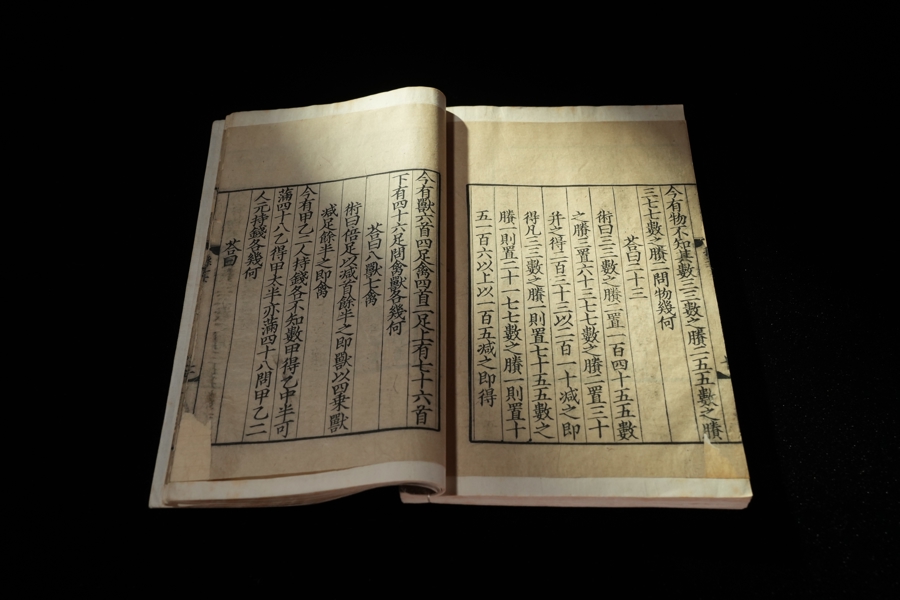 今有物不知其數三三數之賸二五五數之賸
三七七數之賸二問物幾何
荅曰二十三
術曰三三數之賸二置一百四十五五數
之賸三置六十三七七數之賸二置三十
并之得二百三十三以二百一十減之即
得凡三三數之賸一則置七十五五數之
賸一則置二十一七七數之賸一則置十
五一百六以上以一百五減之即得
今有獸六首四足禽四首二足上有七十六首
下有四十六足問禽獸各幾何
荅曰八獸七禽
術曰倍足以減首餘半之即獸以四乗獸
減足餘半之即禽
今有甲乙二人持錢各不知數甲得乙中半可
滿四十八乙得甲太半亦滿四十八問甲乙二
人元持錢各幾何
荅曰